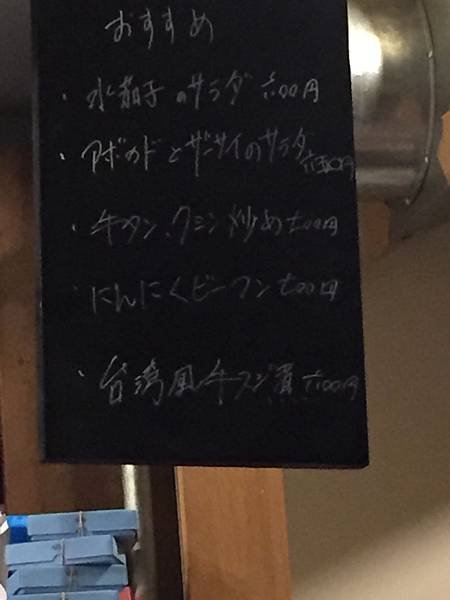 おすすめ
・水茄子のサラダ 六00円
・アボカドとザーサイのサラダ 六五0円
・牛タン、クミン炒め 七00円
・にんにくビーフン 七00円
・台湾風牛スジ煮 六00円